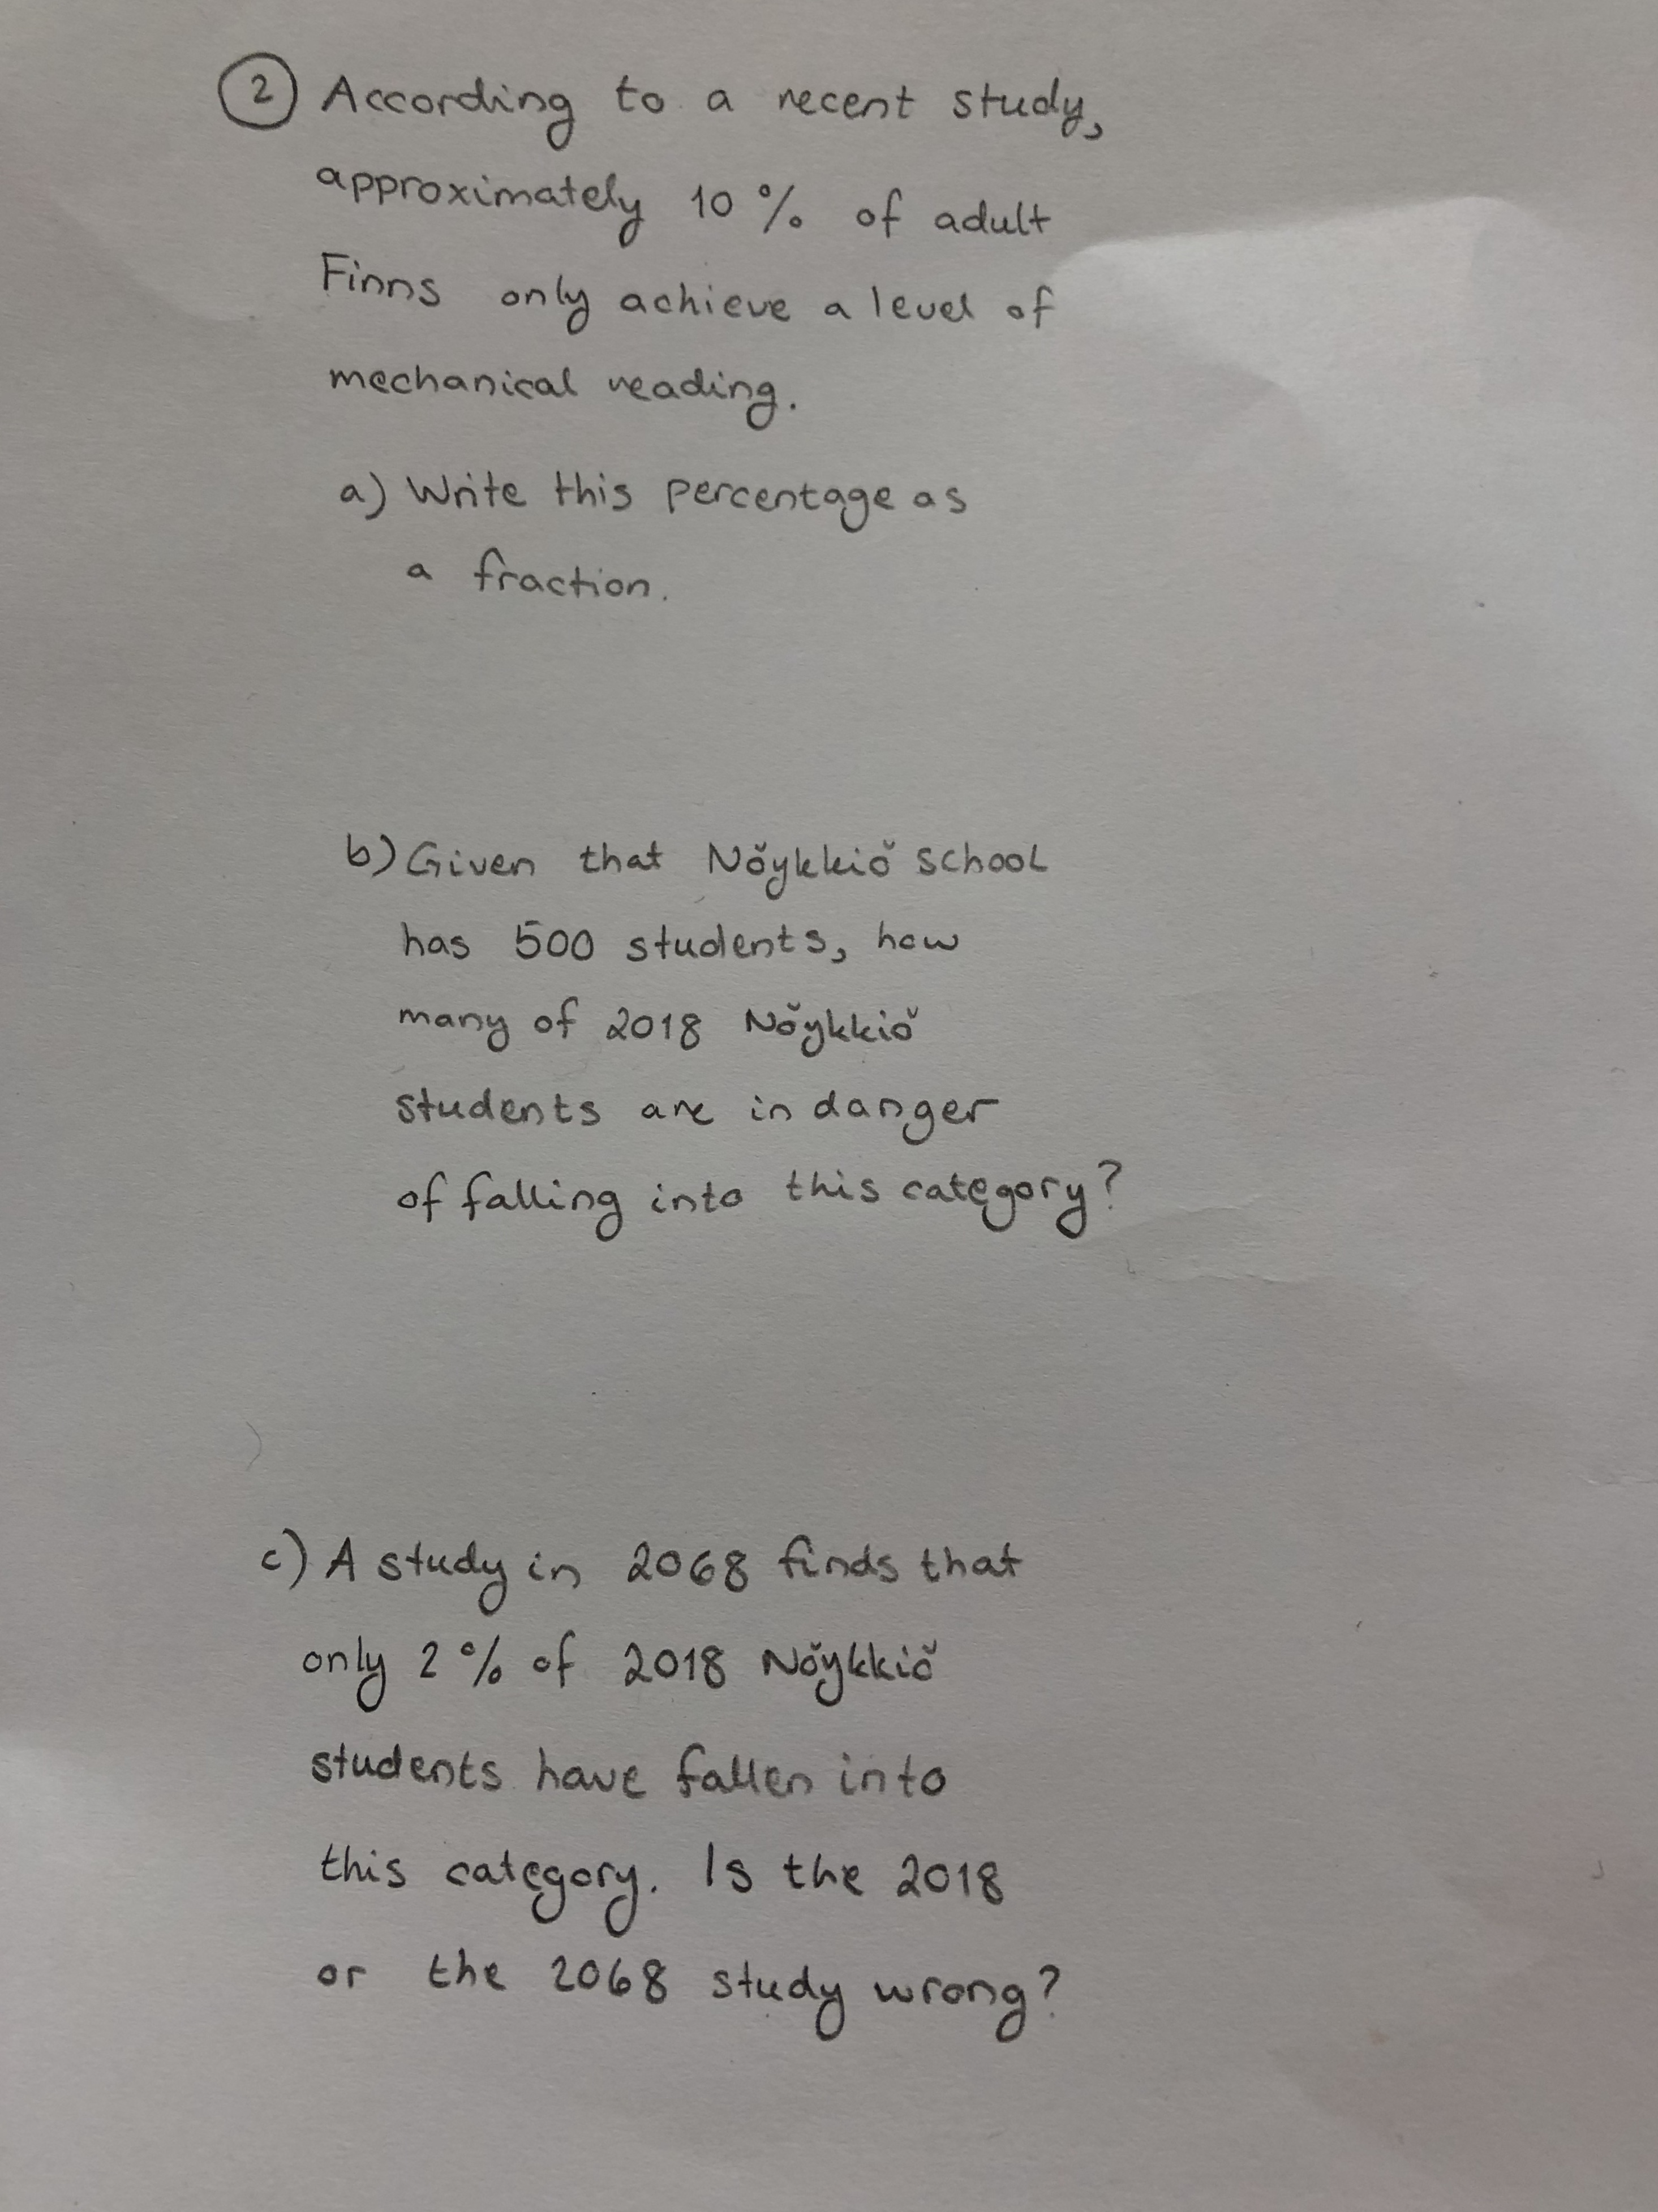 2 According to a recent study,
approximately 10 % of adult
Finns only achieve a level of
mechanical reading.
a) Write this percentage as
a fraction.
b) Given that Nöykkiö school
has 500 students, how
many of 2018 Nöykkiö
students are in danger
of falling into this category?
c) A study in 2068 finds that
only 2 % of 2018 Nöykkiö
students have fallen into
this category. Is the 2018
or the 2068 study wrong?